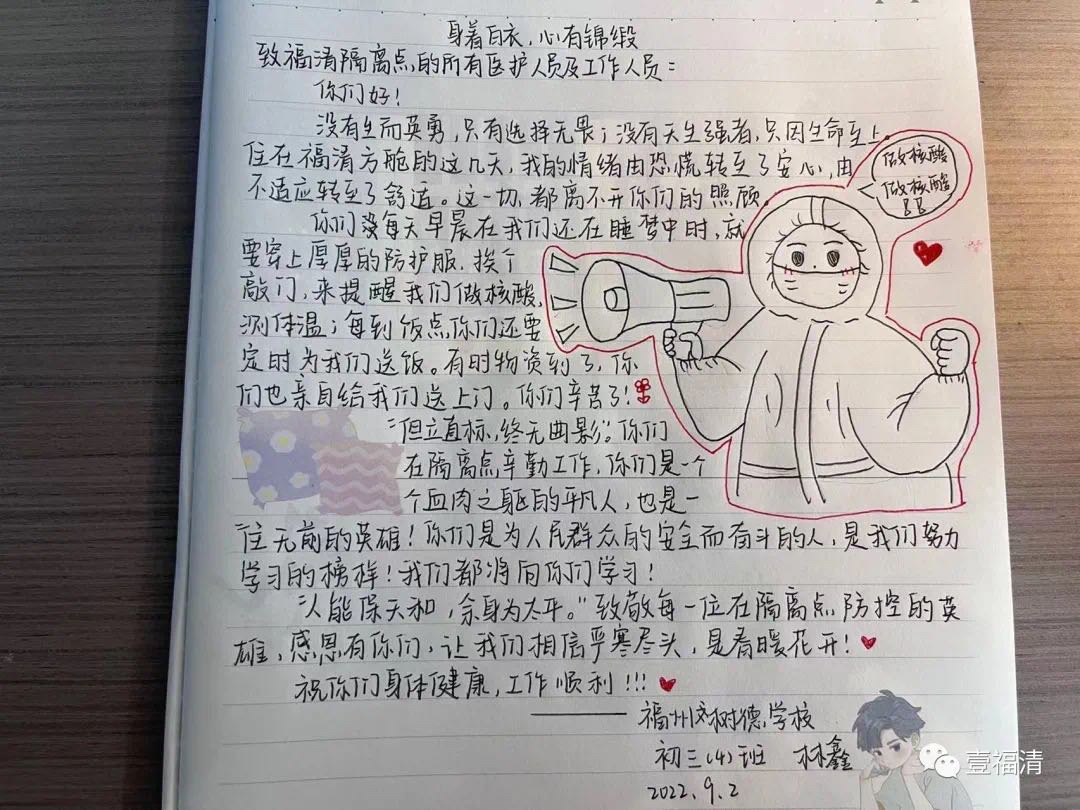 身着白衣，心有锦缎
致福清隔离点的所有医护人员及工作人员：
你们好！
没有生而英勇，只有选择无畏；没有天生强者，只因生命至上。
住在福清方舱的这几天，我的情绪由恐慌转至了安心，由
不适应转至了舒适。这一切都离不开你们的照顾。
你们没每天早晨在我们还在睡梦中时，就
要穿上厚厚的防护服．挨个
敲门，来提醒我们做核酸，
测体温；每到饭点你们还要
定时为我们送饭。有时物资到了，你
们也亲自给我们送上门。你们辛苦了！
“但立直标，终无曲影”。你们
在隔离点辛勤工作，你们是一个
个血肉之躯的平凡人，也是一
往无前的英雄！你们是为人民群众的安全而奋斗的人，是我们努力
学习的榜样！我们都将向你们学习！
“人能保天和，余身为太平。”致敬每一位在隔离点防控的英
雄，感恩有你们，让我们相信严寒尽头，是春暖花开！
祝你们身体健康，工作顺利！！！
——— 福州树德学校
初三（4）班 林鑫
2022.9.2
做核酸
做核酸
！！
壹福清